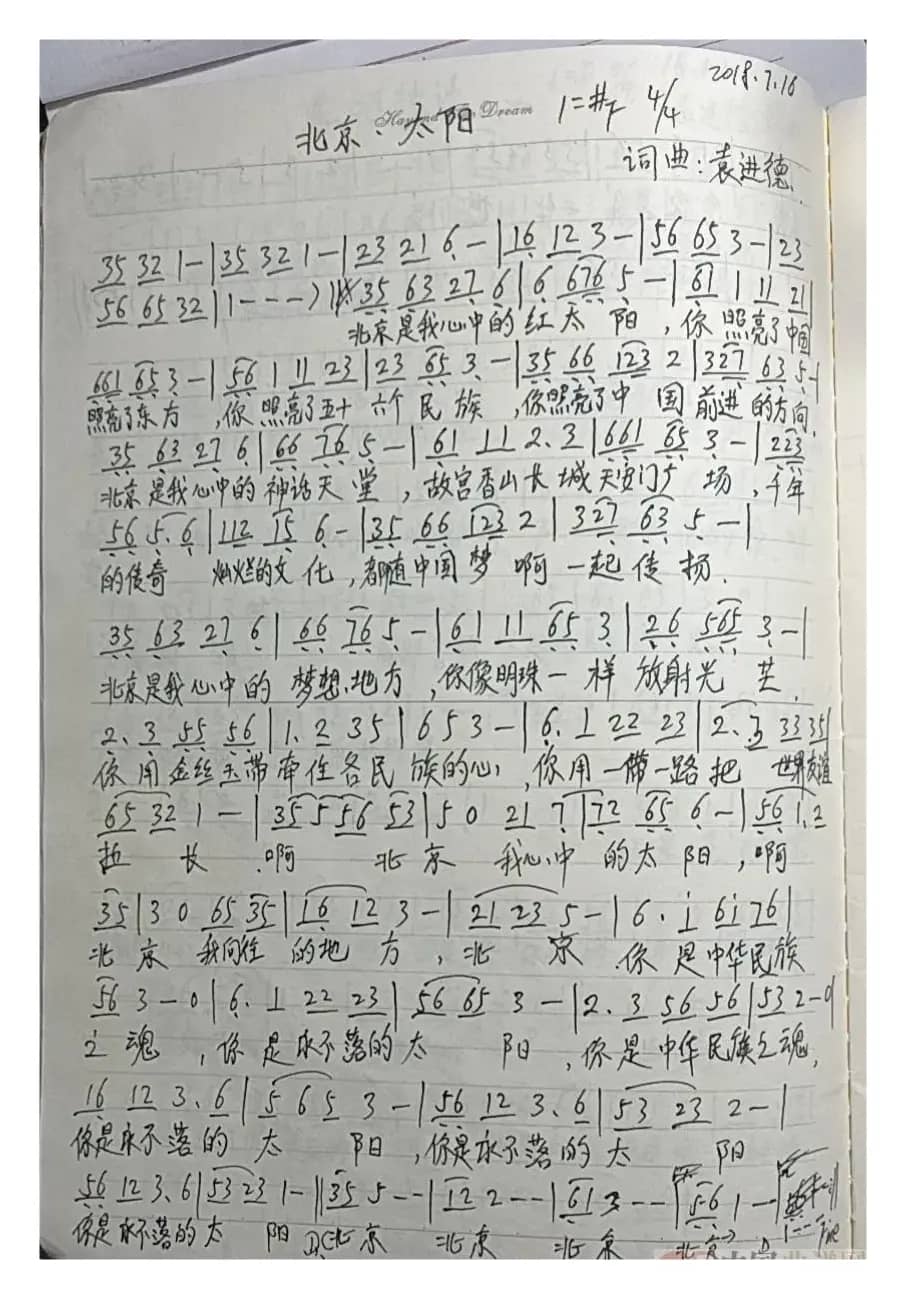 2018.7.16
北京、太阳 1=#F 4/4
词曲:袁进德.
35 32 1 - | 35 32 1 - | 23 21 6 - | 16 12 3 - | 56 65 3 - | 23
56 65 32 | 1 - - - ) | 35 63 27 6 | 6 676 5 - | 61 1 11 21 |
北京是我心中的红太阳,你照亮了中国
661 65 3 - | 56 1 11 23 | 23 65 3 - | 35 66 123 2 | 327 63 5 - |
照亮了东方,你照亮了五十六个民族,你照亮了中国前进的方向.
35 63 27 6 | 66 76 5 - | 61 11 2.3 | 661 65 3 - | 223
北京是我心中的神话天堂,故宫香山长城天安门广场,千年
56 5.6 | 112 15 6 - | 35 66 123 2 | 327 63 5 - |
的传奇 灿烂的文化,都随中国梦啊一起传扬.
35 63 27 6 | 66 76 5 - | 61 11 65 3 | 26 565 3 - |
北京是我心中的梦想地方,你像明珠一样放射光芒.
2.3 55 56 | 1.2 35 | 6 5 3 - | 6.1 22 23 | 2.3 33 35 |
你用金丝玉带牵住各民族的心,你用一带一路把世界友谊
65 32 1 - | 35 5 56 53 | 5 0 21 7 | 72 65 6 - | 56 1.2
拉长.啊 北京 我心中的太阳,啊
35 | 3 0 65 35 | 16 12 3 - | 21 23 5 - | 6. i 6i 76 |
北京 我向往的地方,北京.你是中华民族
56 3 - 0 | 6.1 22 23 | 56 65 3 - | 2.3 56 56 | 53 2 - 0 |
之魂,你是永不落的太阳,你是中华民族之魂,
16 12 3.6 | 5 6 5 3 - | 56 12 3.6 | 53 23 2 - |
你是永不落的太阳,你是永不落的太阳
56 12 3.6 | 53 23 1 - || 35 5 - - | 12 2 - - | 61 3 - - | 56 1 -
你是永不落的太阳 D.C北京 北京 北京 北京
1 - - - Fine